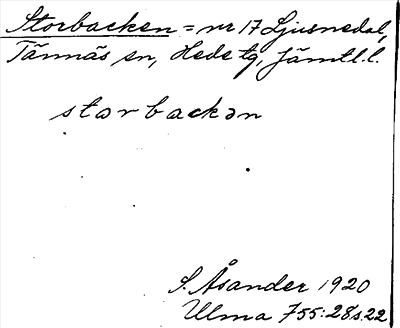 Storbacken = nr 17 Ljusnedal,
Tännäs sn, Hede tg, Jämtl. l.
storbackən
S. Åsander 1920
Ulma 755:28 s. 22